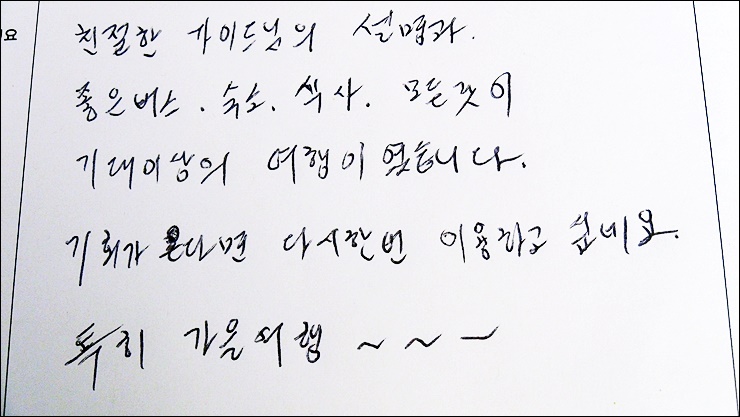 친절한 가이드님의 설명과.
좋은버스. 숙소. 식사. 모든것이
기대이상의 여행이였습니다.
기회가 된다면 다시한번 이용하고 싶네요.
특히 가을여행 ~ ~ ~